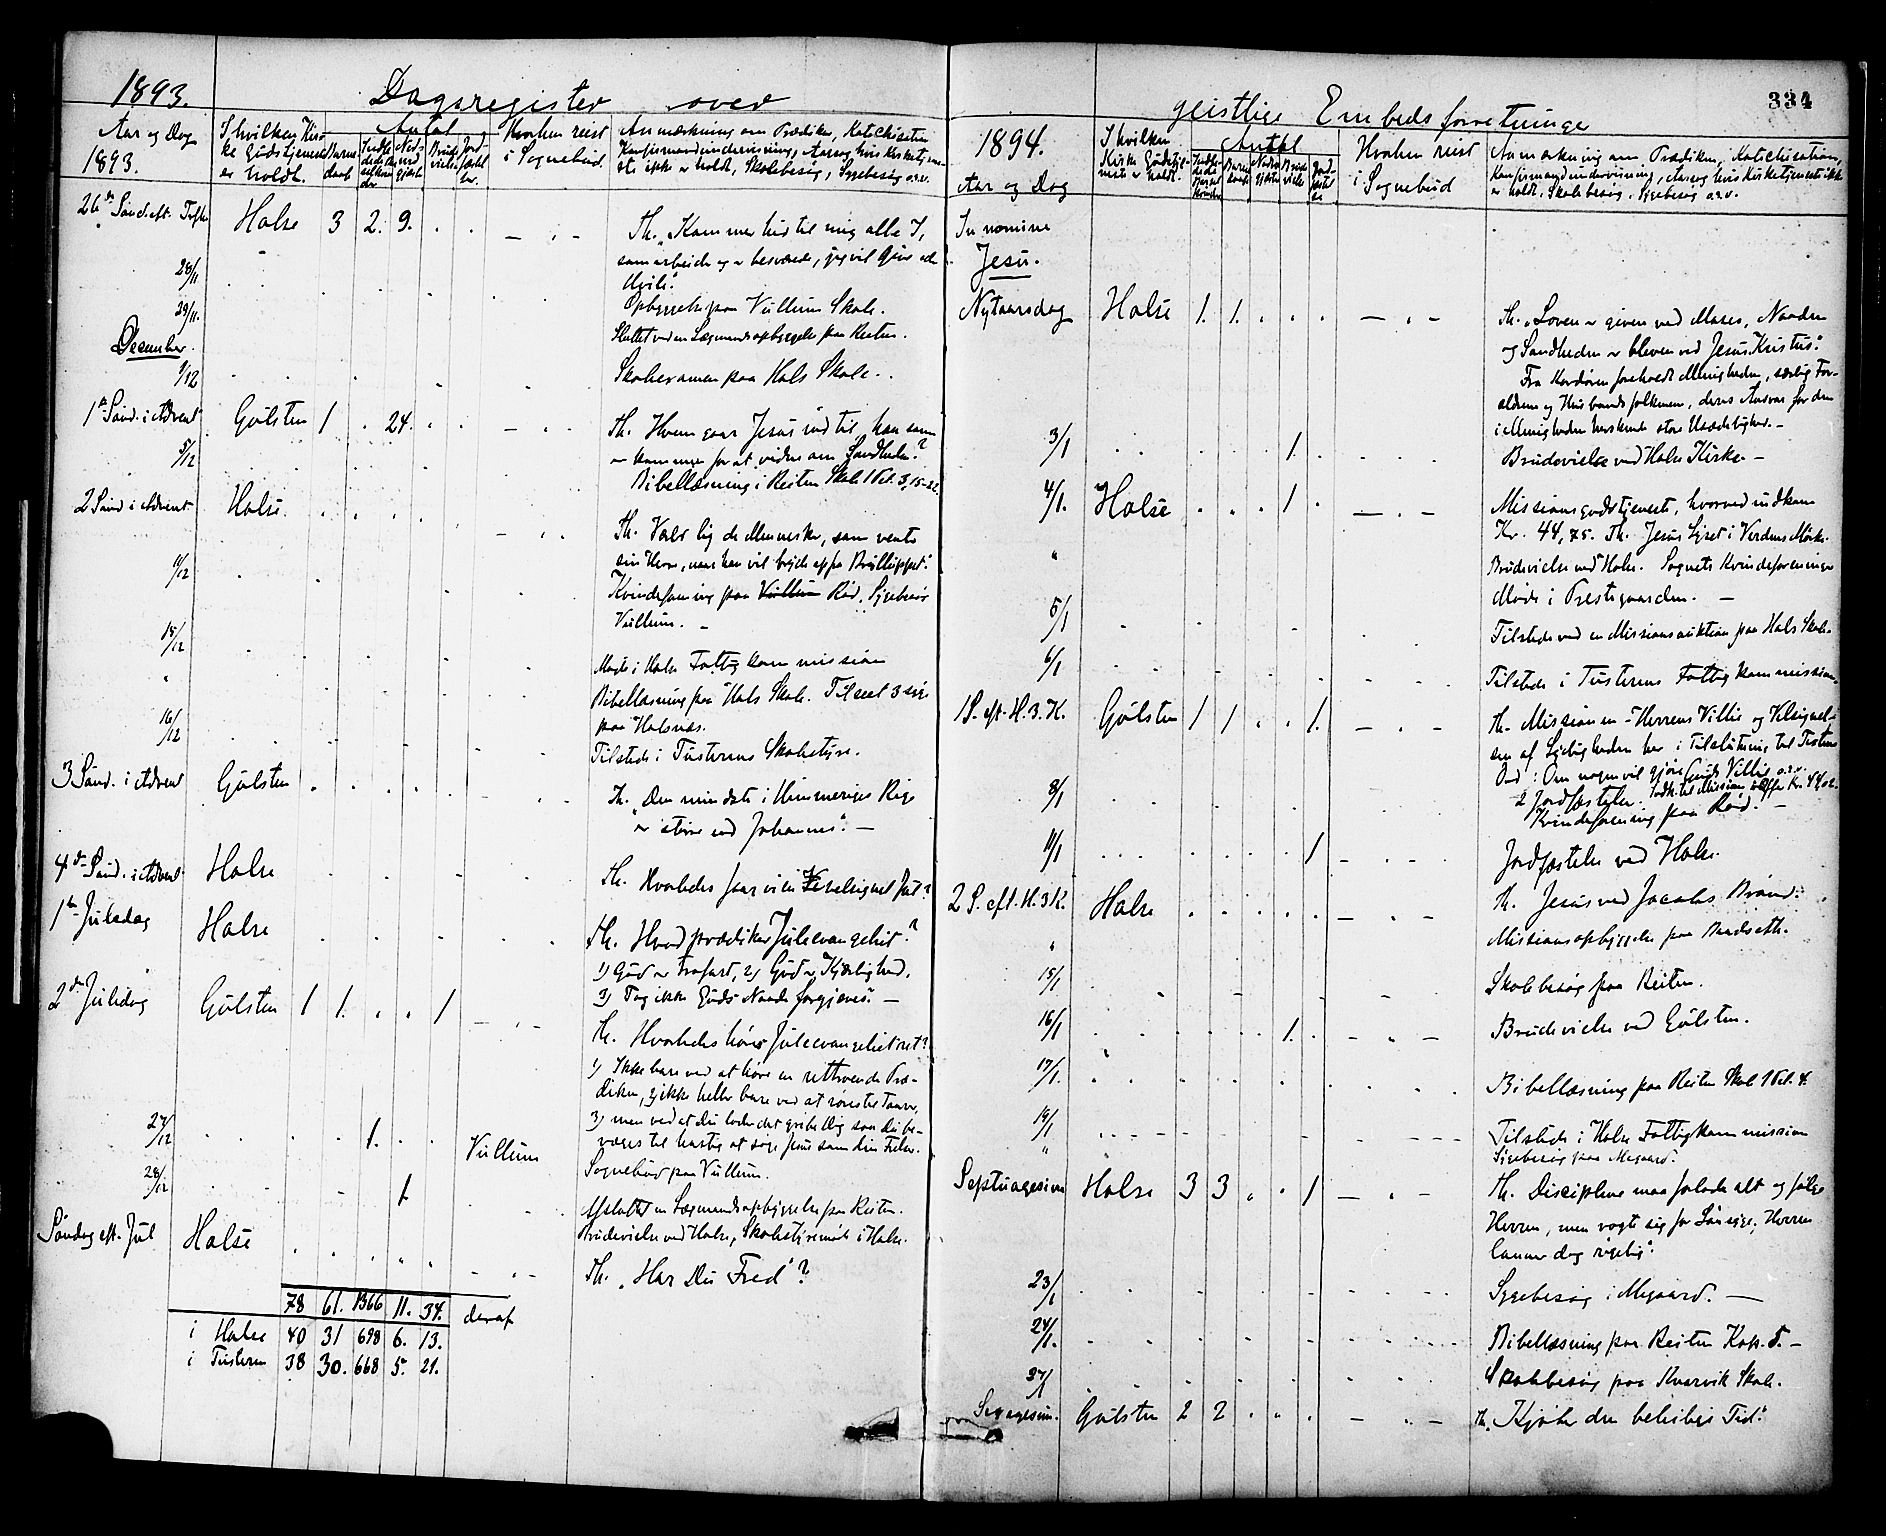 1893.
Dagsregister over
Aar og Dag
1893.
I hvilken Kir-
ke Gudstjeneste
er holdt.
Antal
Hvorhen reist
i Sognebud
Anmærkning om Prædiken, Katechisation
Konfirmandundervisning, Aarsag hvis Kirketjene-
ste ikke er holdt, Skolebesøg, Sygebesøg o.s.v.
26de Sönd. eft. Tref. Halse 3 2. 9.
Th. „Kommer hid til mig alle I,
som arbeide og er besværede, jeg vil give eder
Hvile."
28/11
Opbyggelse paa Vullum Skole.
29/11.
Sluttet med en Lægmandsopbyggelse paa Reiten.
December.
1/12
Skoleexamen paa Hals Skole.
1ste Sönd. i Advent Gulsten 1 . 24.
Th. Hvem gaar Jesus ind til, han som
er kommen for at vidne om Sandheden?
5/12
Bibellæsning i Reiten Skole 1 Pet. 3, 15-22.
2 Sönd i Advent Halse.
Th. Vær lig de Mennesker, som vente
sin Herre, naar han vil bryde op fra Brylluppet.
11/12
Kvindeforening paa Vullum Rød. Sygebesøg
Vullum.
15/12
Møde i Halse Fattigkommission
"
Bibellæsning paa Hals Skole. Tilseet 3 syge
paa Halsnæs.
16/12
Tilstede i Tusterens Skolestyre.
3 Sönd. i Advent Gulsten
Th. „Den mindste i Himmeriges Rige
er större end Johannes". —
4de Sönd. i Advent Halse
Th. Hvorledes faar vi en Velsignet Jul?
1ste Juledag Halse
Th. Hvad prædiker Juleevangeliet?
1) Gud er trofast, 2) Gud er Kjærlighed,
3) Tag ikke Guds Naade forgjæves. —
2den Juledag Gulsten 1 1. . . 1
Th. Hvorledes höres Juleevangeliet ret?
1) Ikke bare ved at høre en rettroende Præ-
diken, 2) ikke heller bare ved at röres til Taarer,
3) men ved at Du lader det gribe Dig saa Du be-
væges til hastig at søge Jesus som din Frelser.
27/12 1. Vullum
Sognebud paa Vullum.
28/12 1.
Afsluttet en Lægmandsopbyggelse paa Reiten.
Brudevielse ved Halse, Skolestyremöte i Halse.
Søndag eft. Jul Halse
Th. „Har Du Fred"?
78 61. 1366 11. 34. deraf
i Halse 40 31 698 6. 13.
i Tusteren 38 30. 668 5. 21.
334
geistlige Embedsforretninger
1894.
Aar og Dag
I hvilken
Kirke Gudstje-
neste er holdt.
Antal
Hvorhen reist
i Sognebud
Anmærkning om Prædiken, Katechisation,
Konfirmandundervisning, Aarsag hvis Kirketjeneste ikke
er holdt, Skolebesøg, Sygebesøg o.s.v.
In nomine
Jesu.
Nytaarsdag Halse 1. 1.
Th. „Loven er given ved Moses, Naaden
og Sandheden er bleven ved Jesus Kristus."
Fra Kordøren foreholdt Menigheden, særlig For-
ældrene og Husbondsfolkene, deres Ansvar for den
i Menigheden herskende store Usædelighed. —
3/1 1
Brudevielse ved Halse Kirke —
4/1. Halse 1
Missionsgudstjeneste, hvorved indkom
Kr. 44,75. Th. Jesus Lyset i Verdens Mørke.
"
Brudevielse ved Halse. Sognets Kvindeforeninger
Møde i Prestegaarden. —
5/1
Tilstede ved en Missionsauktion paa Hals Skole.
6/1
Tilstede i Tusterens Fattigkommission.
1 S. eft. H. 3. K. Gulsten 1 1 . . 1.
Th. Missionen – Herrens Villie og Velsignel-
sen af Lydigheden her i Tilslutning til Textens
Ord: Om nogen vil gjøre Guds Villie o.s.v.
2 Jordfæstelser. Indk. til Mission Offer Kr. 44,02.
8/1
Kvindeforening paa Rød. —
11/1 1
Jordfæstelse ved Halse.
2 S. eft. H. 3 K. Halse
Th. Jesus ved Jacobs Brønd.
"
Missionsopbyggelse paa Baadseth.
15/1
Skolebesøg paa Reiten.
16/1 1.
Brudevielse ved Gulsten.
17/1.
Bibellæsning paa Reiten Skol 1 Pet. 4.
19/1
Tilstede i Halse Fattigkommission
"
Sygebesøg paa Megaard.
Septuagesima Halse 3 3 . . 1
Th. Disciplene maa forlade alt og følge
Herren, men vogte sig for Lönsyge, Herren
lønner dog rigelig".
23/1
Sygebesøg i Megaard. —
24/1.
Bibellæsning paa Reiten Kap. 5. —
27/1
Skolebesøg paa Kvarvik Skole.
Sexagesim. Gulsten 2 2
Th. „Kjøber den beleilige Tid."